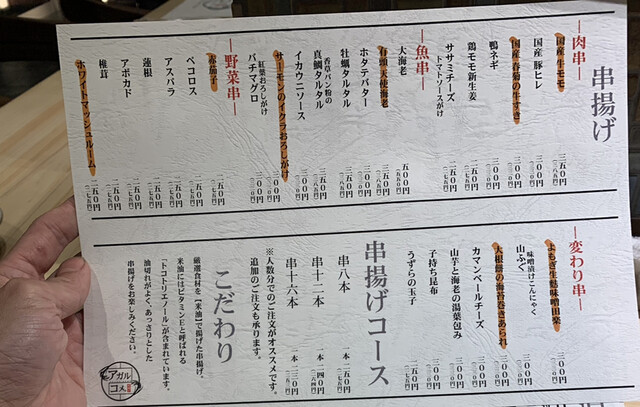 串揚げ
―肉串―
国産牛モモ 三五〇円
国産豚ヒレ 三〇〇円
国産春菊の牛すき 三〇〇円
鴨ネギ 三〇〇円
鶏モモ新生姜 二五〇円
ササミチーズ
トマトソースがけ 二五〇円
―魚串―
大海老 五〇〇円
有頭 天使海老
ホタテバター
牡蠣タルタル
香草パン粉の
真鯛タルタル
イカウニソース
サーモンのイクラおろしがけ 三〇〇円
紅葉おろしがけ
バチマグロ 三〇〇円
―野菜串―
赤茄子 二五〇円
ペコロス 二五〇円
アスパラ 二五〇円
蓮根 二五〇円
アボカド 二五〇円
椎茸 二五〇円
ホワイトマッシュルーム 二五〇円
―変わり串―
よもぎ生麩味噌田楽 三〇〇円
味噌漬けこんにゃく
山ふぐ 三〇〇円
大根餅の海苔巻きあられ 三〇〇円
カマンベールチーズ 三〇〇円
山芋と海老の湯葉包み 三〇〇円
子持ち昆布 三〇〇円
うずらの玉子 二五〇円
串揚げコース
串八本
串十二本
串十六本
※人数分でのご注文がオススメです。
追加のご注文も承ります。
こだわり
厳選食材を【米油】で揚げた串揚げ。
米油にはビタミンEと呼ばれる
「トコトリエノール」が含まれています。
油切れがよく、あっさりとした
串揚げをお楽しみください。
アガル
コメ